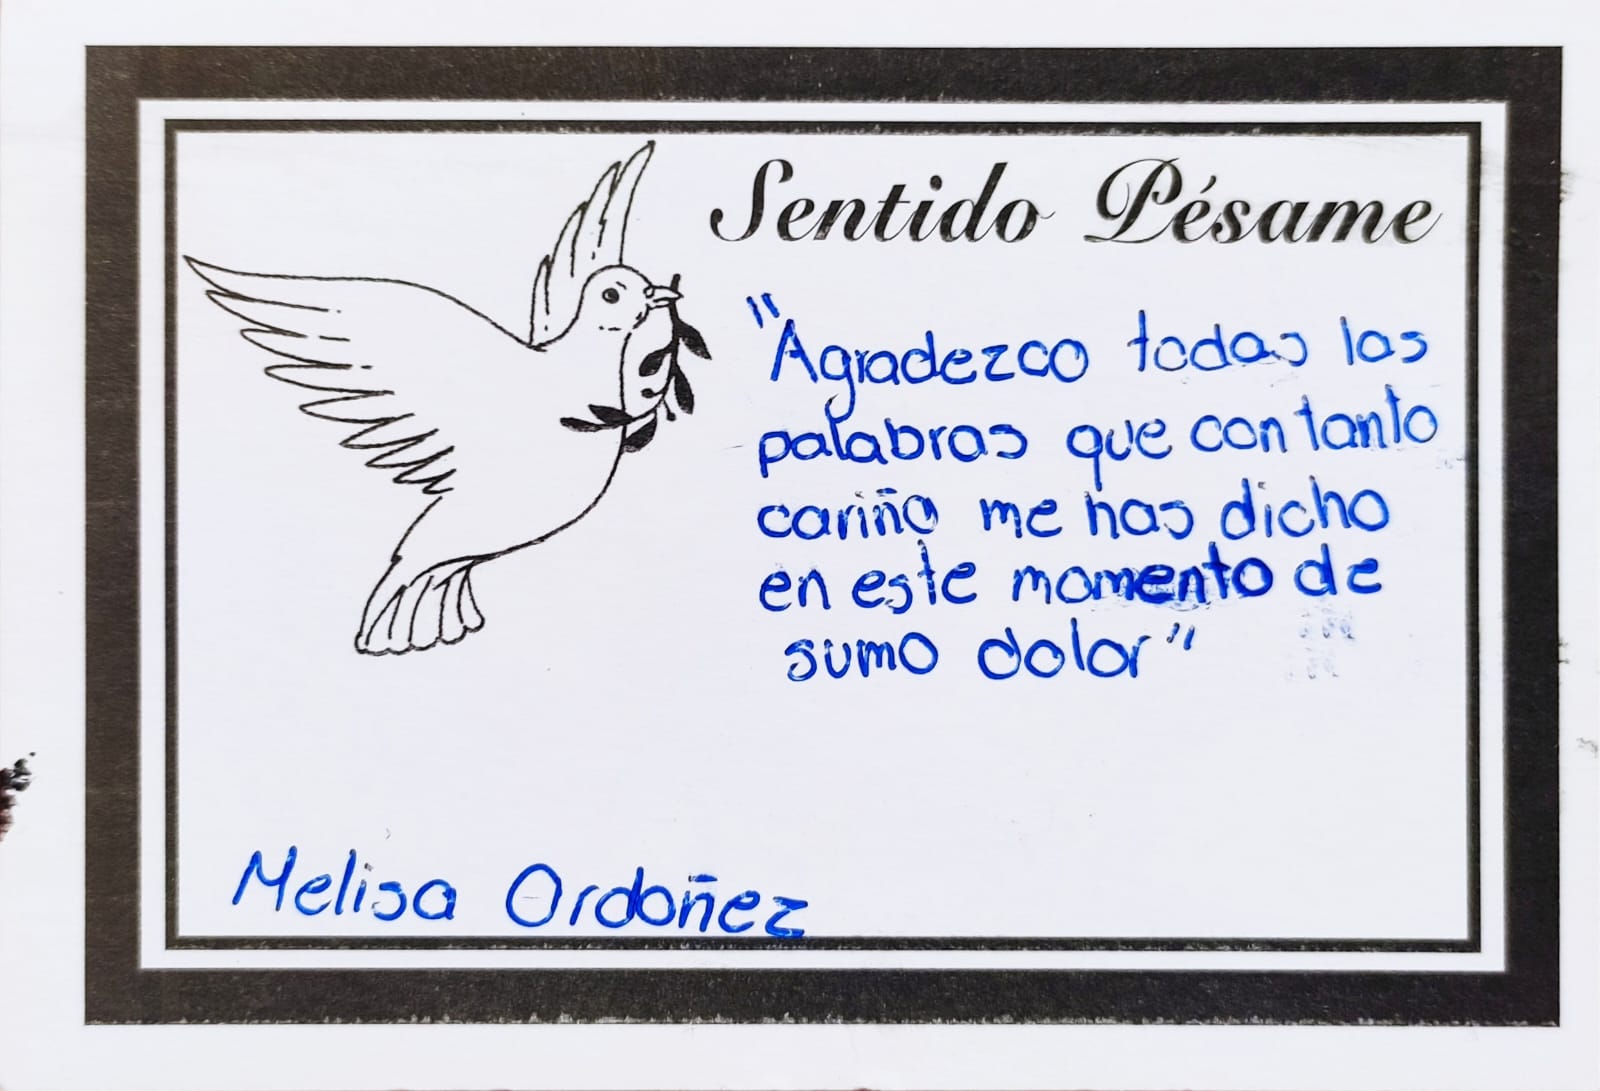 Sentido Pésame
"Agradezco todas las
palabras que con tanto
cariño me has dicho
en este momento de
sumo dolor"
Melisa Ordoñez